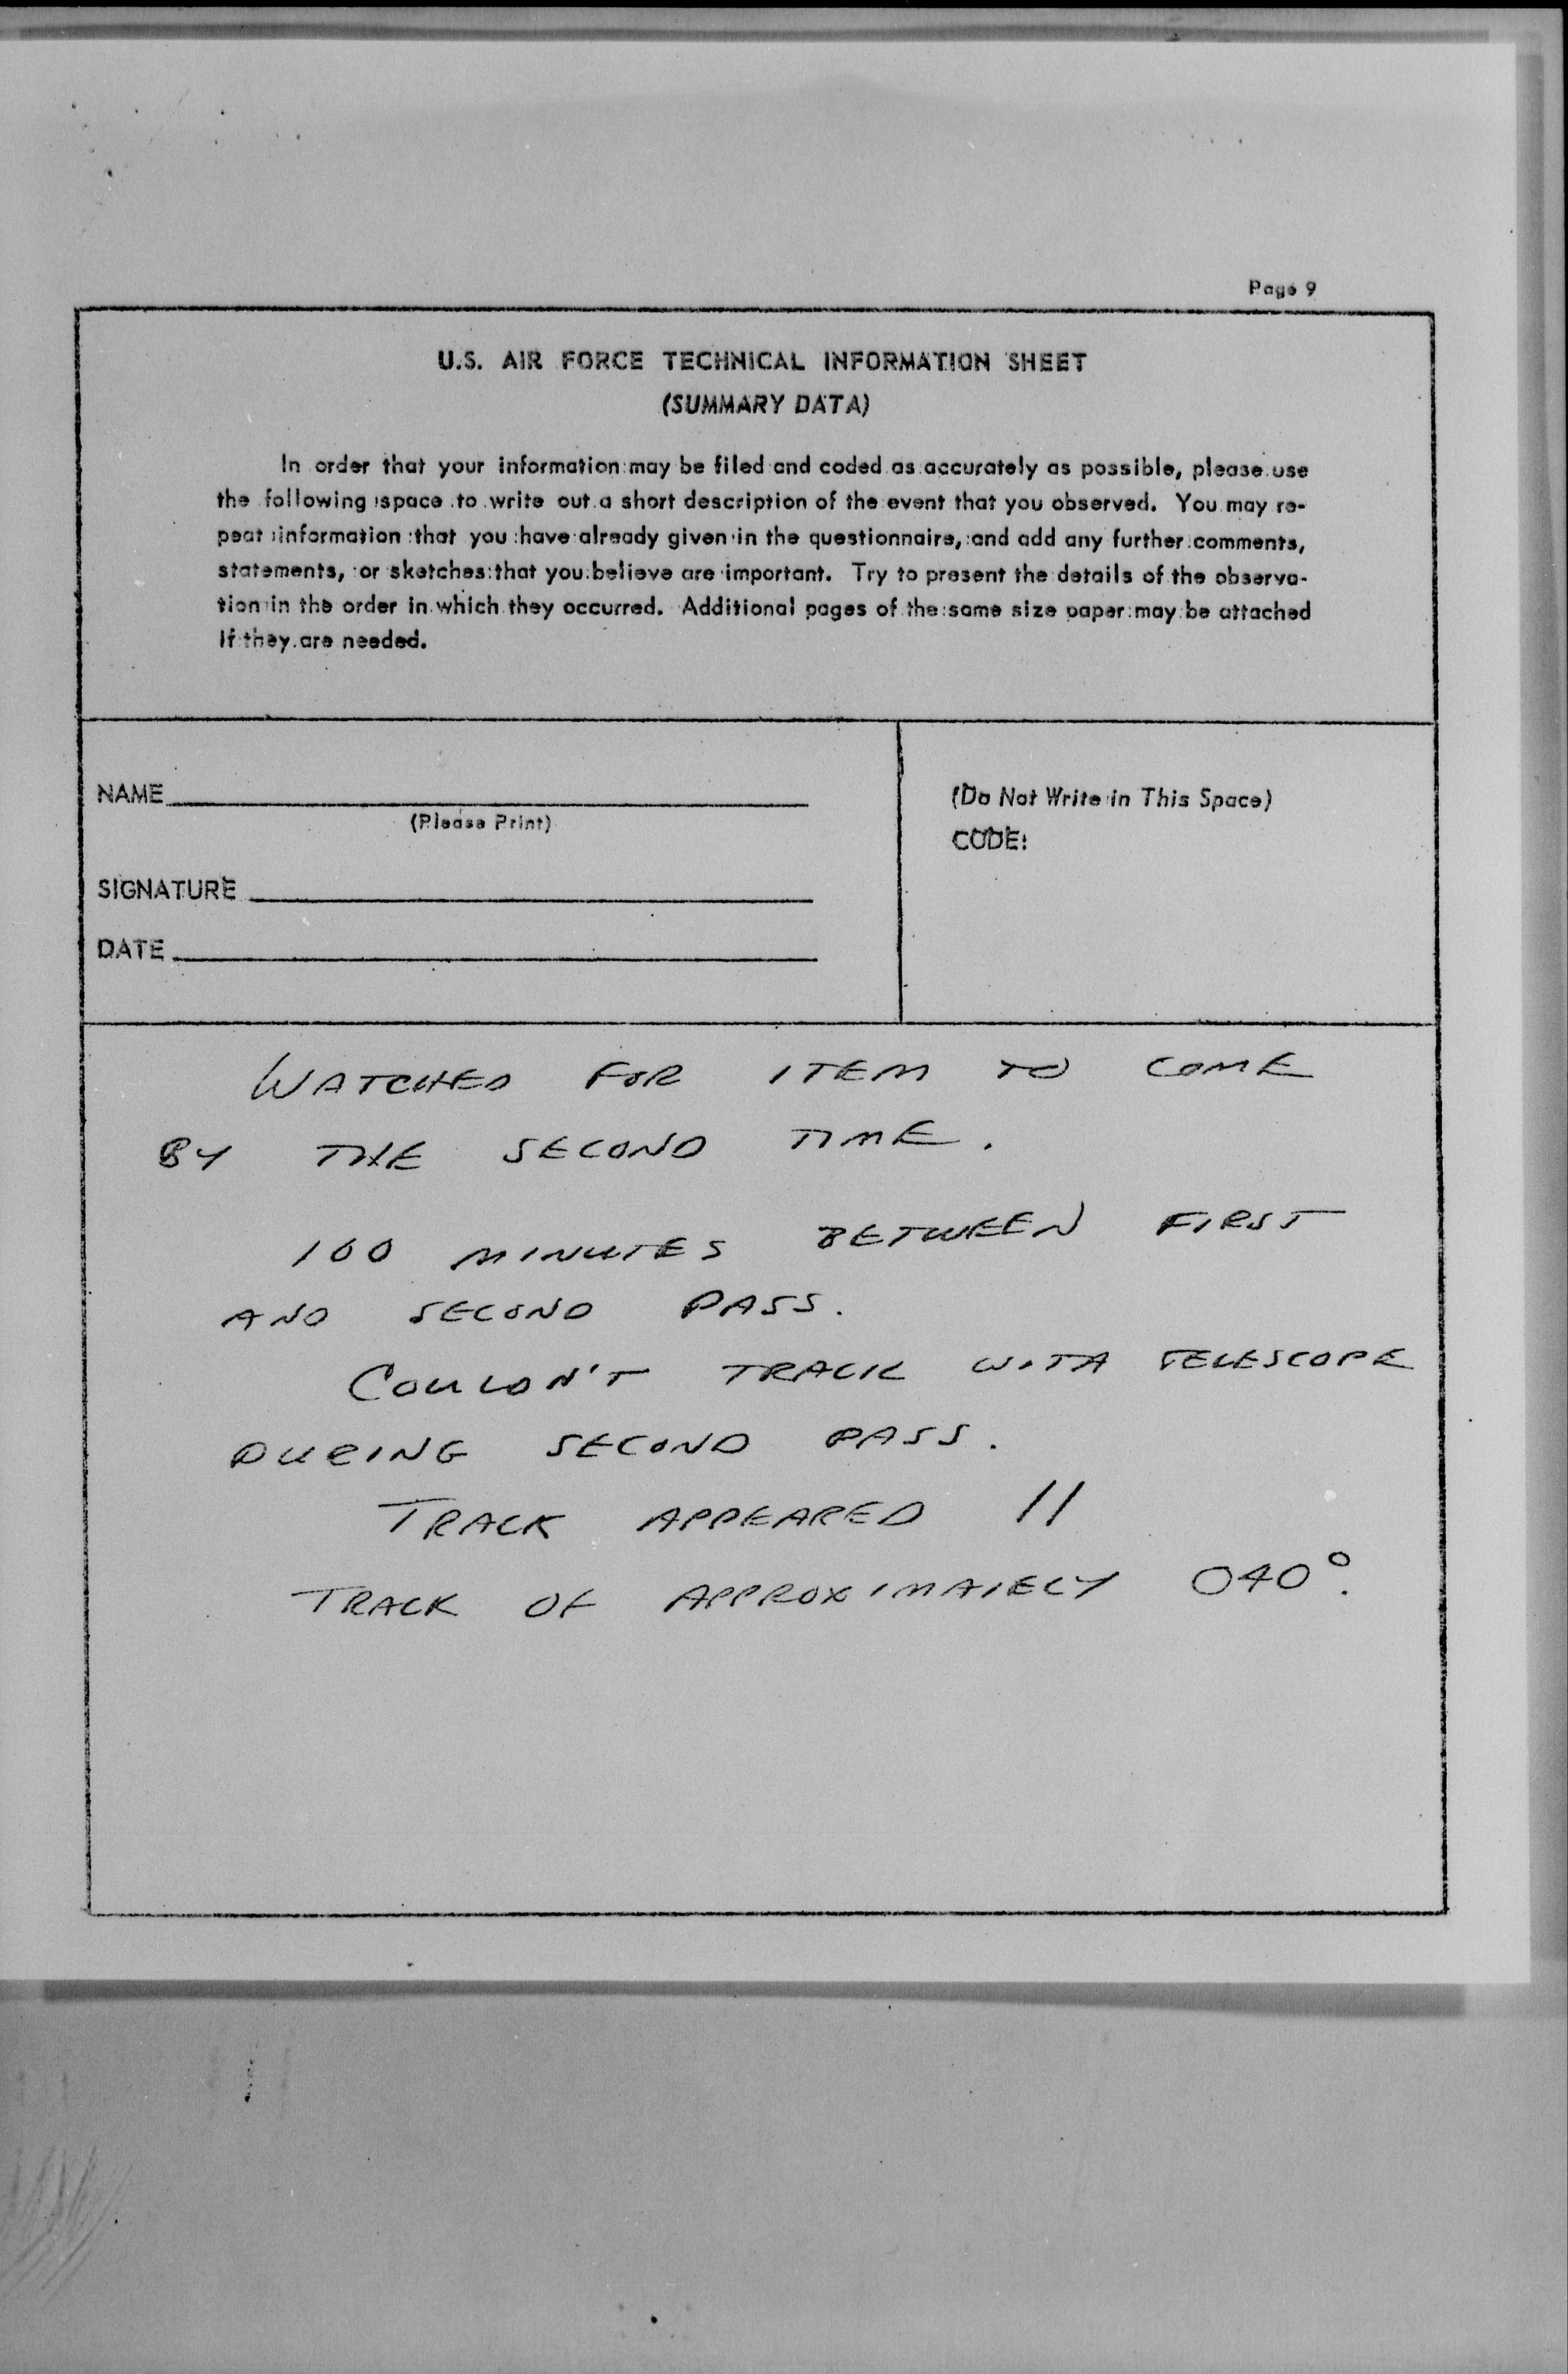 Page 9
U.S. AIR FORCE TECHNICAL INFORMATION SHEET
(SUMMARY DATA)
In order that your information may be filed and coded as accurately as possible, please use
the following space to write out a short description of the event that you observed. You may re-
peat information that you have already given in the questionnaire, and add any further comments,
statements, or sketches that you believe are important. Try to present the details of the observa-
tion in the order in which they occurred. Additional pages of the same size paper may be attached
if they are needed.
NAME
(Please Print)
SIGNATURE
DATE
(Do Not Write in This Space)
CODE:
WATCHED FOR ITEM TO COME
BY THE SECOND TIME.
100 MINUTES BETWEEN FIRST
AND SECOND PASS.
COULDN'T TRACK WITH TELESCOPE
DURING SECOND PASS.
TRACK APPEARED //
TRACK OF APPROXIMATELY 040°.